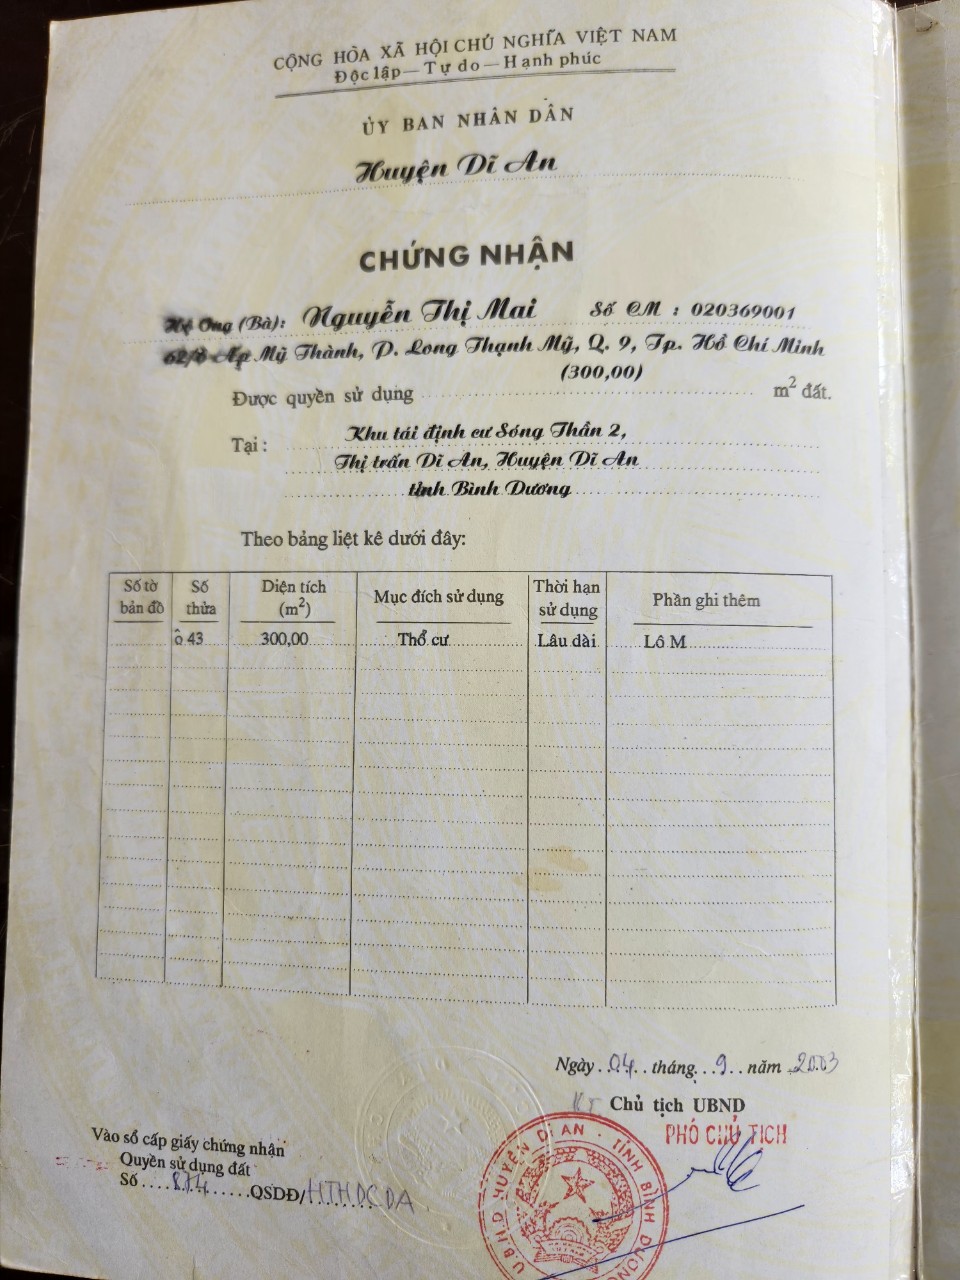 CỘNG HÒA XÃ HỘI CHỦ NGHĨA VIỆT NAM
Độc lập — Tự do — Hạnh phúc
ỦY BAN NHÂN DÂN
Huyện Dĩ An
CHỨNG NHẬN
Hộ Ông (Bà): Nguyễn Thị Mai Số CM : 020369001
Ấp Mỹ Thành, P. Long Thạnh Mỹ, Q. 9, Tp. Hồ Chí Minh
(300,00)
Được quyền sử dụng m2 đất.
Tại : Khu tái định cư Sóng Thần 2,
Thị trấn Dĩ An, Huyện Dĩ An
tỉnh Bình Dương
Theo bảng liệt kê dưới đây:
Số tờ bản đồ Số thửa Diện tích (m2) Mục đích sử dụng Thời hạn sử dụng Phần ghi thêm
ô 43 300,00 Thổ cư Lâu dài Lô M
Ngày 04 tháng 9 năm 2003
KT Chủ tịch UBND
PHÓ CHỦ TỊCH
Vào sổ cấp giấy chứng nhận
Quyền sử dụng đất
Số QSDĐ/
U.B.N.D HUYỆN DĨ AN . TỈNH BÌNH DƯƠNG